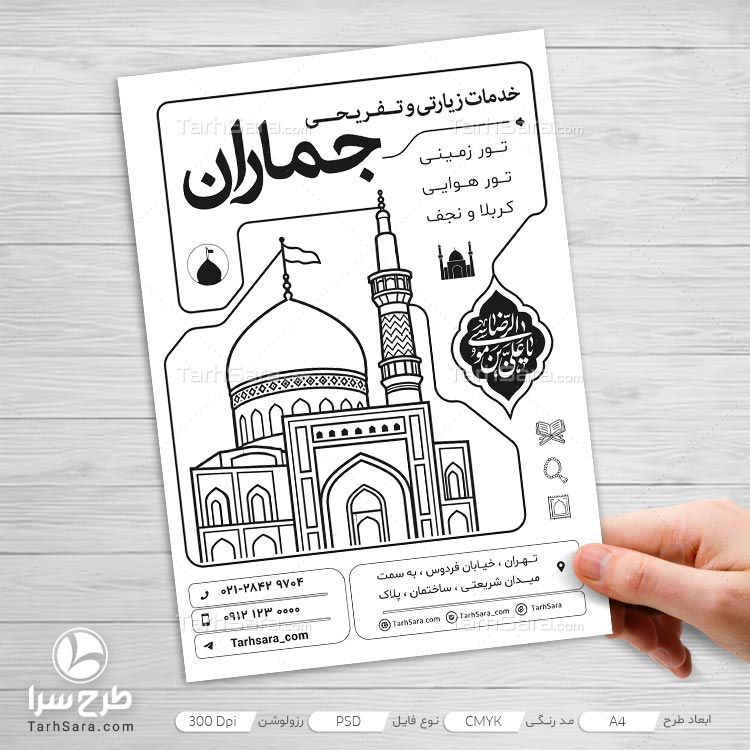 خدمات زیارتی و تفریحی
جماران
تور زمینی
تور هوایی
کربلا و نجف
یا علی بن موسی الرضا
تهران ، خیابان فردوس ، به سمت
میدان شریعتی ، ساختمان ، پلاک
TarhSara.com Tarhsara_com TarhSara
۰۲۱-۲۸۴۲ ۹۷۰۴
۰۹۱۲ ۱۲۳ ۰۰۰۰
Tarhsara_com
TarhSara.com
TarhSara.com
TarhSara.com
TarhSara.com
TarhSara.com
TarhSara.com
طرح سرا
TarhSara.com
ابعاد طرح A4 مد رنگی CMYK نوع فایل PSD رزولوشن 300 Dpi